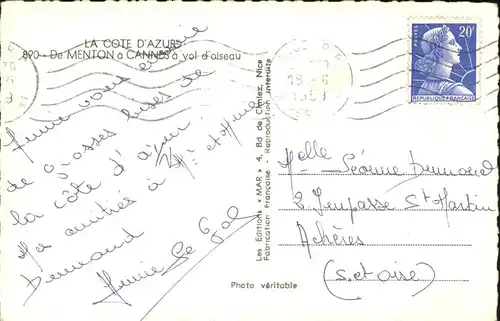 LA COTE D'AZUR
890 - De MENTON à CANNES à vol d'oiseau
Annie vous envoie
de grosses bises de
la côte d'azur
Mes amitiés à Mr et Mme
Durand
Annie Le Gal
Les Editions "MAR" 4, Bd de Cimiez, Nice
Fabrication Française - Reproduction interdite
Photo véritable
POSTES
20F
REPUBLIQUE FRANÇAISE
Melle Léonne Durand
2 Impasse St Martin
Achères
(S. et Oise)